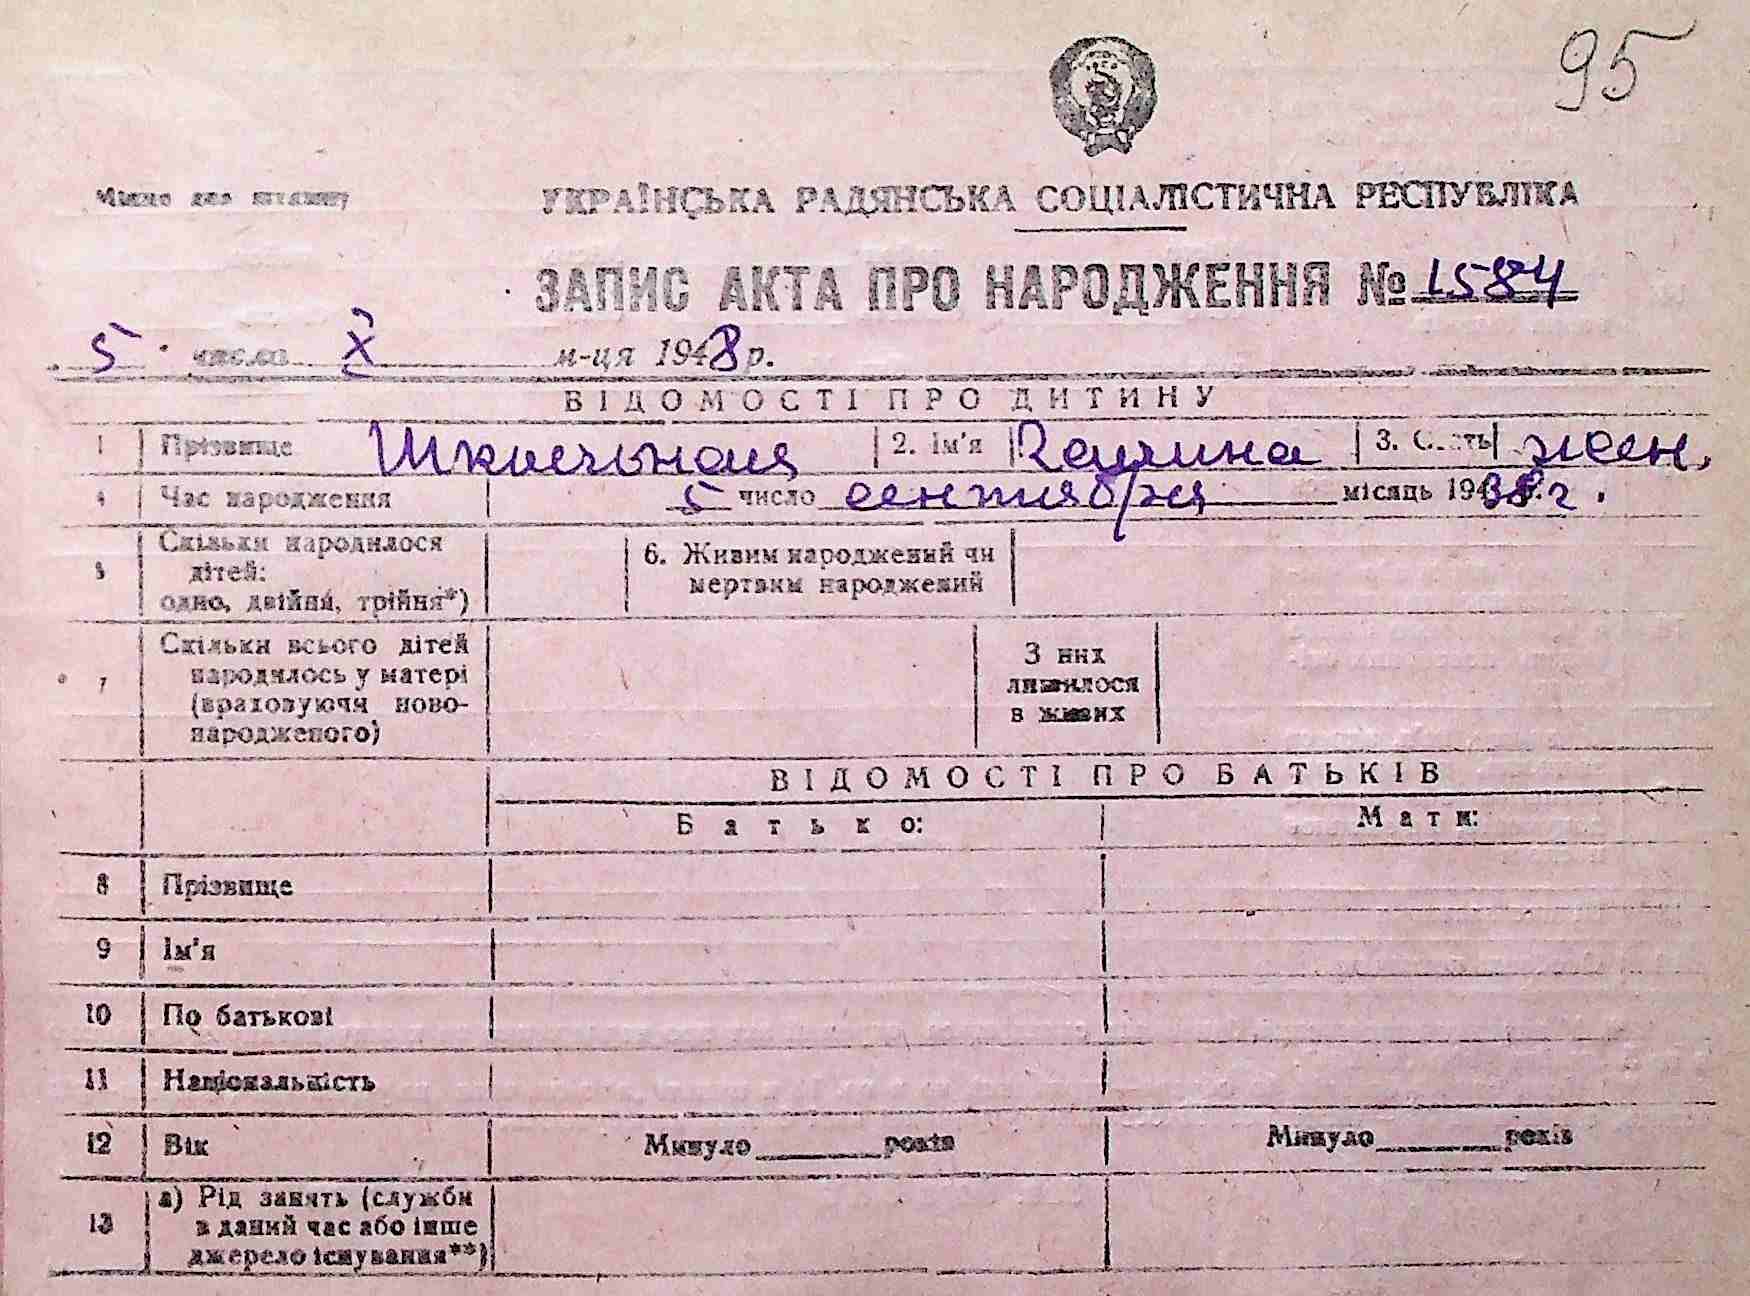 95
Місце для штампу
УКРАЇНСЬКА РАДЯНСЬКА СОЦІАЛІСТИЧНА РЕСПУБЛІКА
ЗАПИС АКТА ПРО НАРОДЖЕННЯ № 1584
5 число X м-ця 1948 р.
ВІДОМОСТІ ПРО ДИТИНУ
1 Прізвище Школьная 2. Ім'я Галина 3. Стать жен.
4 Час народження 5 число сентября місяць 1938 г.
5 Скільки народилося дітей: одно, двійня, трійня*) 6. Живим народжений чи мертвим народжений
7 Скільки всього дітей народилось у матері (враховуючи новонародженого) З них лишилося в живих
ВІДОМОСТІ ПРО БАТЬКІВ
Батько: Мати:
8 Прізвище
9 Ім'я
10 По батькові
11 Національність
12 Вік Минуло ____ років Минуло ____ років
13 а) Рід занять (служби в даний час або інше джерело існування**)